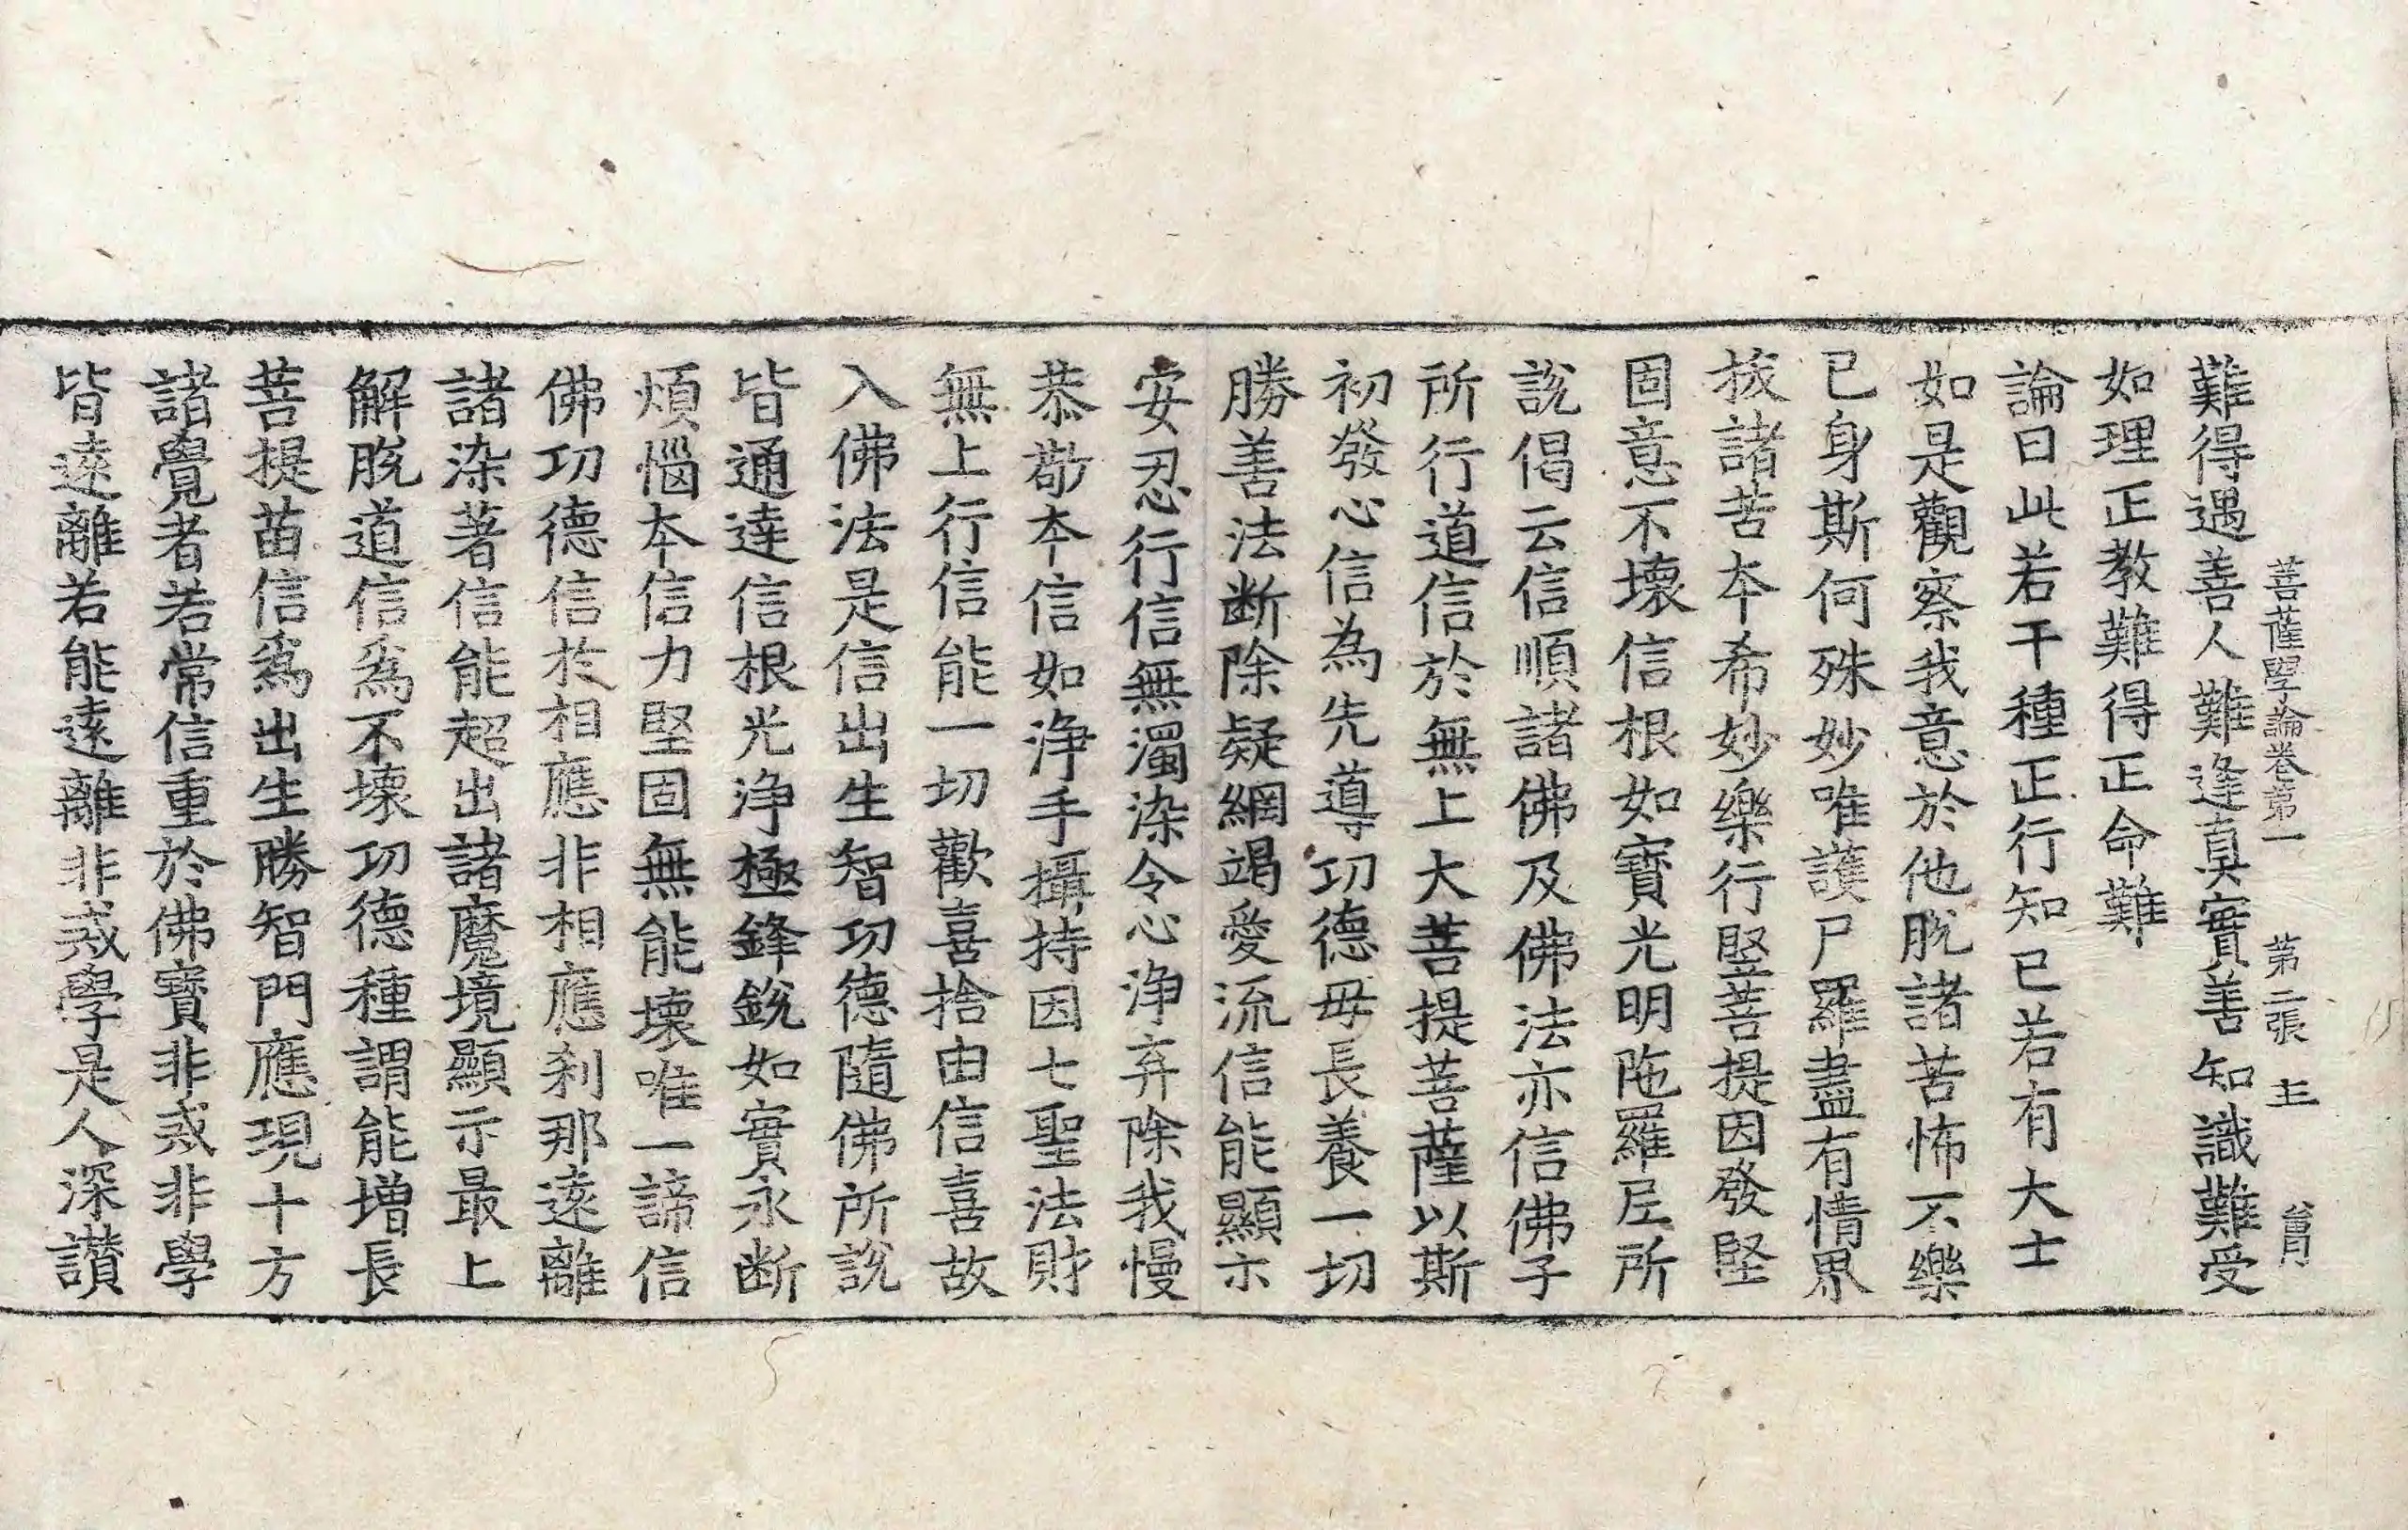 菩薩學論卷第一 第二張 主
難得遇善人難逢真實善知識難受
如理正教難得正命難
論曰此若干種正行知已若有大士
如是觀察我意於他脫諸苦怖不樂
已身斯何殊妙唯護尸羅盡有情界
拔諸苦本希妙樂行堅菩提因發堅
固意不壞信根如寶光明陁羅尼所
說偈云信順諸佛及佛法亦信佛子
所行道信於無上大菩提菩薩以斯
初發心信為先導功德母長養一切
勝善法断除疑網竭愛流信能顯示
安忍行信無濁染令心淨弃除我慢
恭敬本信如淨手攝持因七聖法財
無上行信能一切歡喜捨由信喜故
入佛法是信出生智功德隨佛所說
皆通達信根光淨極鋒銳如實永断
煩惱本信力堅固無能壞唯一諦信
佛功德信於相應非相應剎那遠離
諸染著信能超出諸魔境顯示最上
解脫道信為不壞功德種謂能增長
菩提苗信為出生勝智門應現十方
諸覺者若常信重於佛寶非戒非學
皆遠離若能遠離非戒學是人深讃